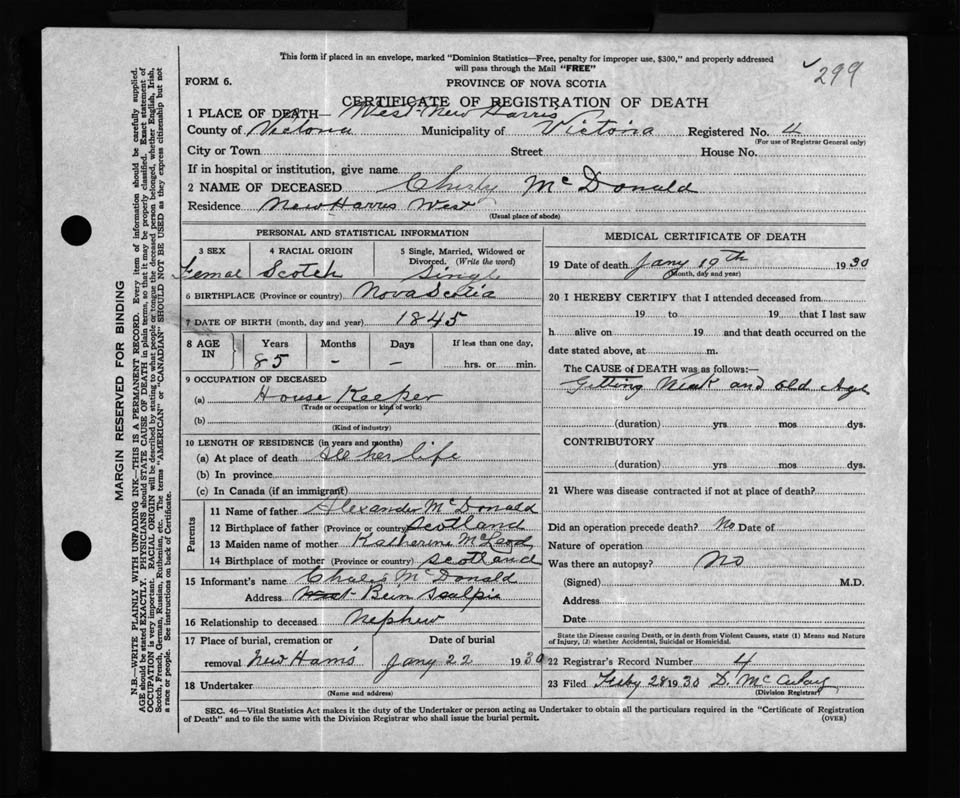 This form if placed in an envelope, marked "Dominion Statistics—Free, penalty for improper use, $300," and properly addressed
will pass through the Mail "FREE"
299
FORM 6.
PROVINCE OF NOVA SCOTIA
CERTIFICATE OF REGISTRATION OF DEATH
1 PLACE OF DEATH— West New Harris
County of Victoria Municipality of Victoria Registered No. 4
(For use of Registrar General only)
City or Town Street House No.
If in hospital or institution, give name
2 NAME OF DECEASED McDonald
Residence New Harris West
(Usual place of abode)
PERSONAL AND STATISTICAL INFORMATION
3 SEX 4 RACIAL ORIGIN 5 Single, Married, Widowed or
Divorced. (Write the word)
Femal Scotch Single
6 BIRTHPLACE (Province or country) Nova Scotia
7 DATE OF BIRTH (month, day and year) 1845
8 AGE IN Years Months Days If less than one day,
85 - - hrs. or min.
9 OCCUPATION OF DECEASED
(a) House Keeper
(Trade or occupation or kind of work)
(b)
(Kind of industry)
10 LENGTH OF RESIDENCE (in years and months)
(a) At place of death All her life
(b) In province
(c) In Canada (if an immigrant)
Parents
11 Name of father Alexander McDonald
12 Birthplace of father (Province or country) Scotland
13 Maiden name of mother Katherine McLeod
14 Birthplace of mother (Province or country) Scotland
15 Informant's name McDonald
Address
16 Relationship to deceased Nephew
17 Place of burial, cremation or Date of burial
removal New Harris Jany 22 1930
18 Undertaker
(Name and address)
MEDICAL CERTIFICATE OF DEATH
19 Date of death Jany 19th 1930
(Month, day and year)
20 I HEREBY CERTIFY that I attended deceased from
19 to 19 that I last saw
h alive on 19 and that death occurred on the
date stated above, at m.
The CAUSE of DEATH was as follows:—
Getting Weak and old Age
(duration) yrs mos dys.
CONTRIBUTORY
(duration) yrs. mos. dys.
21 Where was disease contracted if not at place of death?
Did an operation precede death? No Date of
Nature of operation
Was there an autopsy? No
(Signed) M.D.
Address
Date
State the Disease causing Death, or in death from Violent Causes, state (1) Means and Nature
of Injury, (2) whether Accidental, Suicidal or Homicidal.
22 Registrar's Record Number 4
23 Filed Feby 28 1930 D.
(Division Registrar)
SEC. 46—Vital Statistics Act makes it the duty of the Undertaker or person acting as Undertaker to obtain all the particulars required in the "Certificate of Registration
of Death" and to file the same with the Division Registrar who shall issue the burial permit.
(OVER)
MARGIN RESERVED FOR BINDING
N.B.—WRITE PLAINLY WITH UNFADING INK—THIS IS A PERMANENT RECORD. Every item of information should be carefully supplied.
AGE should be stated EXACTLY. PHYSICIANS should STATE CAUSE OF DEATH in plain terms, so that it may be properly classified. Exact statement of
OCCUPATION is very important. RACIAL ORIGIN will be described by stating to what people or tongue the deceased person belonged, whether English, Irish,
Scotch, French, German, Russian, Ruthenian, etc. The terms "AMERICAN" or "CANADIAN" SHOULD NOT BE USED as they express citizenship but not
a race or people. See instructions on back of Certificate.